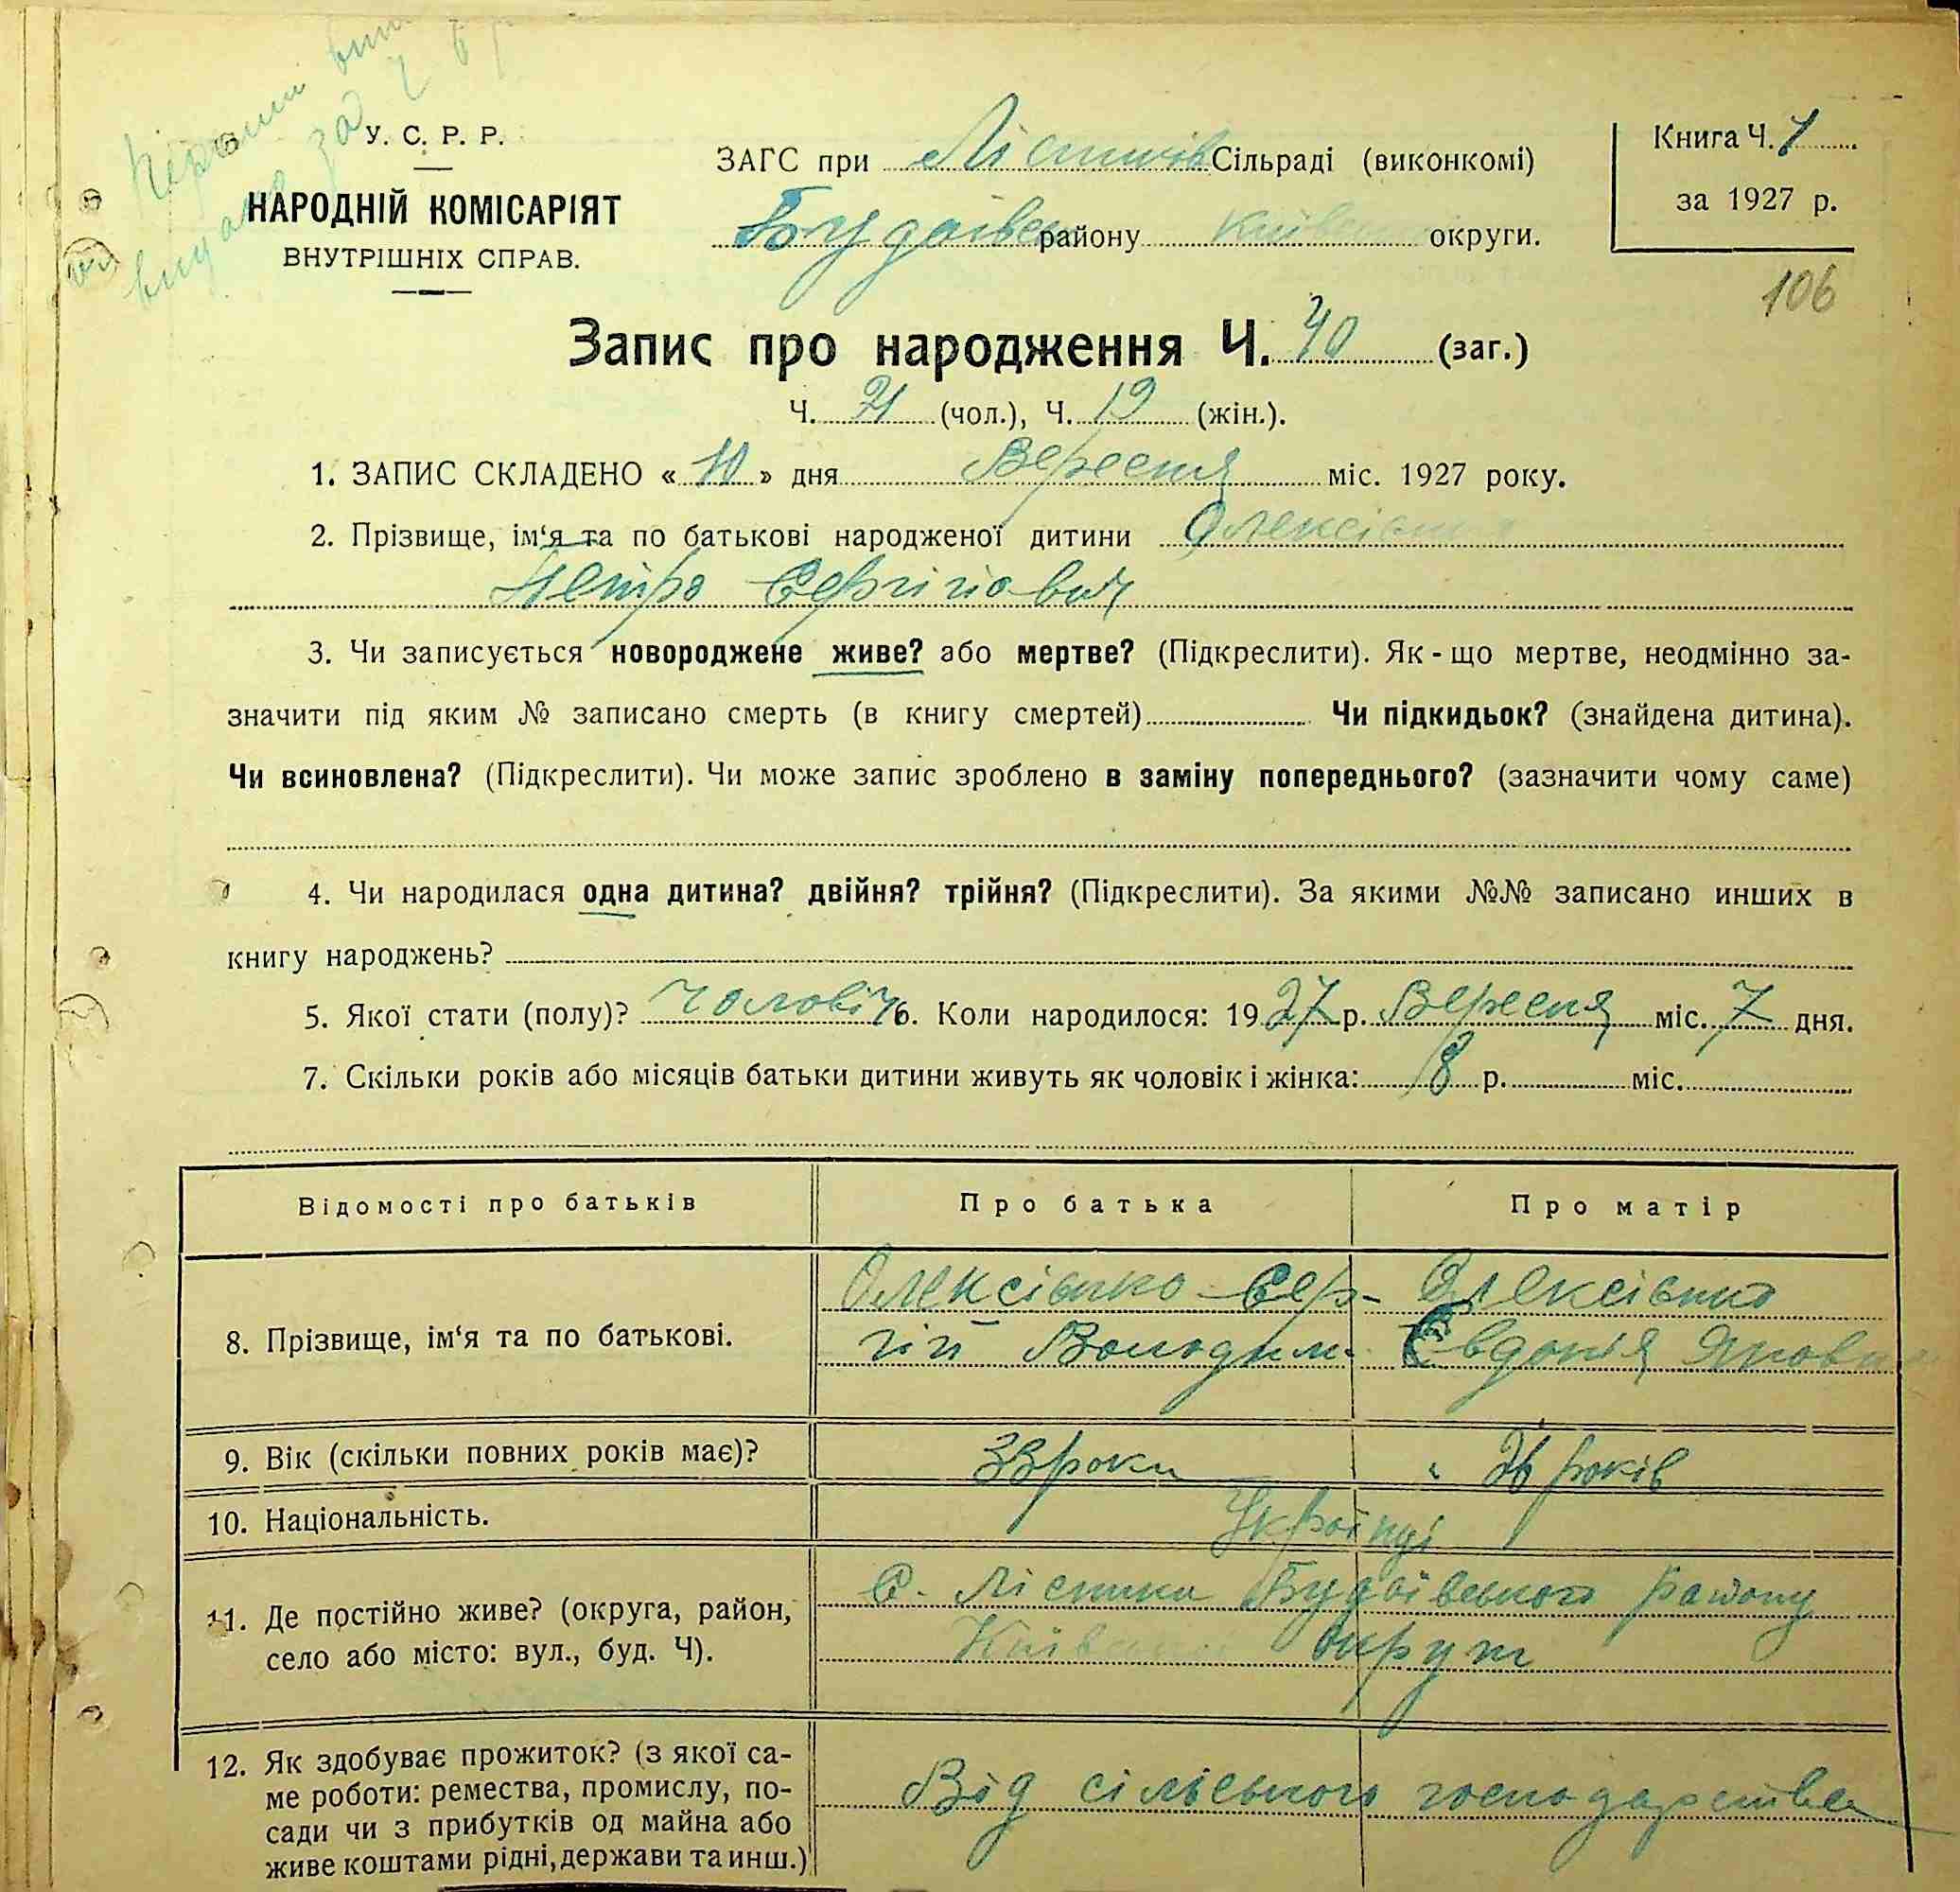 Перший
видано за Ч
У. С. Р. Р.
НАРОДНІЙ КОМІСАРІЯТ
ВНУТРІШНІХ СПРАВ.
ЗАГС при Лісників Сільраді (виконкомі)
Будаївськ району Київськ округи.
Книга Ч. 1
за 1927 р.
106
Запис про народження Ч. 40 (заг.)
Ч. 21 (чол.), Ч. 19 (жін.).
1. ЗАПИС СКЛАДЕНО «10» дня Вересня міс. 1927 року.
2. Прізвище, ім‘я та по батькові народженої дитини Олексієнко
Петро Сергійович
3. Чи записується новороджене живе? або мертве? (Підкреслити). Як-що мертве, неодмінно за-
значити під яким № записано смерть (в книгу смертей) Чи підкидьок? (знайдена дитина).
Чи всиновлена? (Підкреслити). Чи може запис зроблено в заміну попереднього? (зазначити чому саме)
4. Чи народилася одна дитина? двійня? трійня? (Підкреслити). За якими №№ записано инших в
книгу народжень?
5. Якої стати (полу)? Чоловіч 6. Коли народилося: 1927 р. Вересня міс. 7 дня.
7. Скільки років або місяців батьки дитини живуть як чоловік і жінка: 8 р. міс.
Відомості про батьків Про батька Про матір
8. Прізвище, ім‘я та по батькові.
Олексієнко Сер-
гій Володим.
Олексієнко
Євдокія Яковл
9. Вік (скільки повних років має)? 33 роки 26 років
10. Національність. Українці
11. Де постійно живе? (округа, район,
село або місто: вул., буд. Ч).
С. Лісники Будаївського району
Київської округи
12. Як здобуває прожиток? (з якої са-
ме роботи: ремества, промислу, по-
сади чи з прибутків од майна або
живе коштами рідні, держави та инш.)
Від сільського господарства